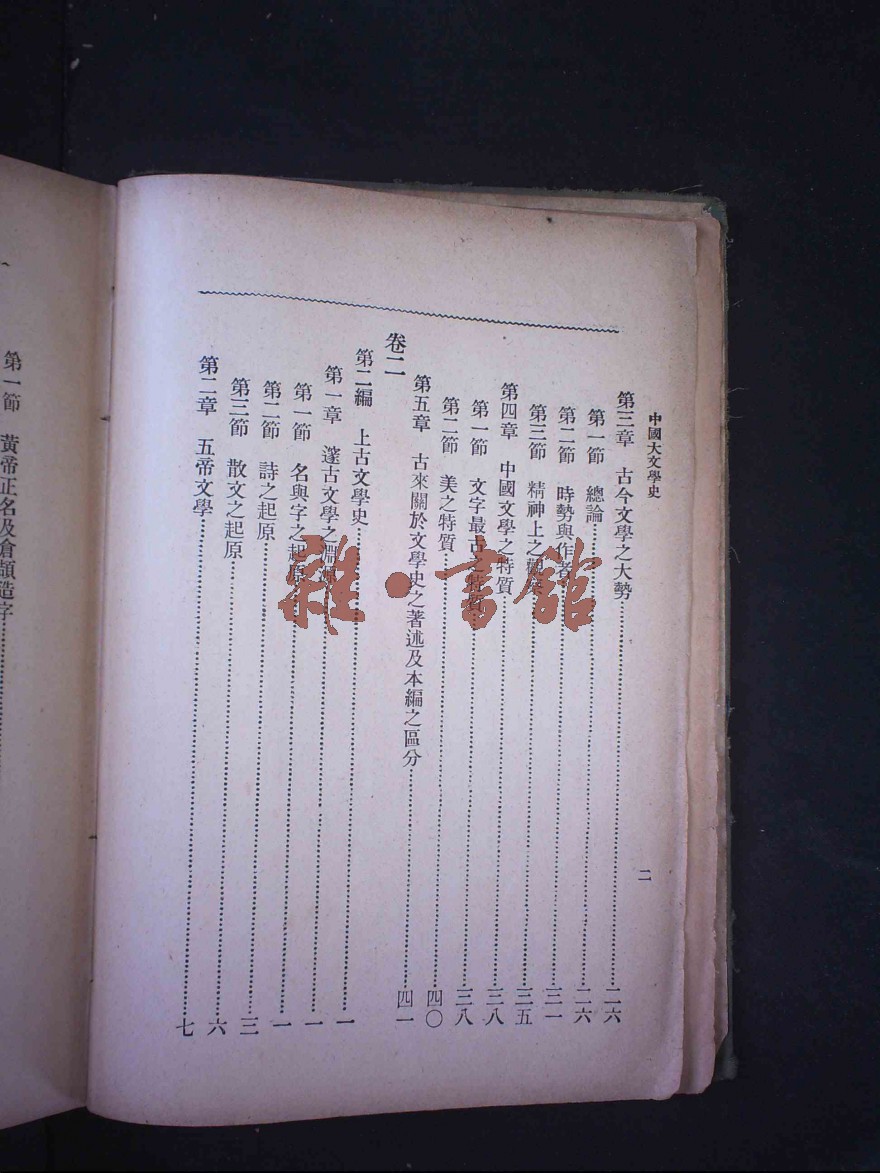 中國大文學史
二
第三章　古今文學之大勢……二六
第一節　總論……二六
第二節　時勢與作者……三一
第三節　精神上之觀察……三五
第四章　中國文學之特質……三八
第一節　文字最古之特質……三八
第二節　美之特質……四〇
第五章　古來關於文學史之著述及本編之區分……四一
卷二
第二編　上古文學史……一
第一章　邃古文學之淵源……一
第一節　名與字之起原……一
第二節　詩之起原……三
第三節　散文之起原……六
第二章　五帝文學……七
第一節　黃帝正名及倉頡造字……
雜·書館